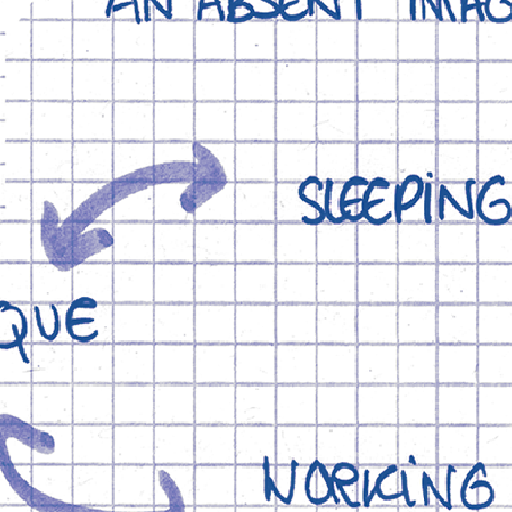 AN ABSENT IMAG
SLEEPING
QUE
WORKING